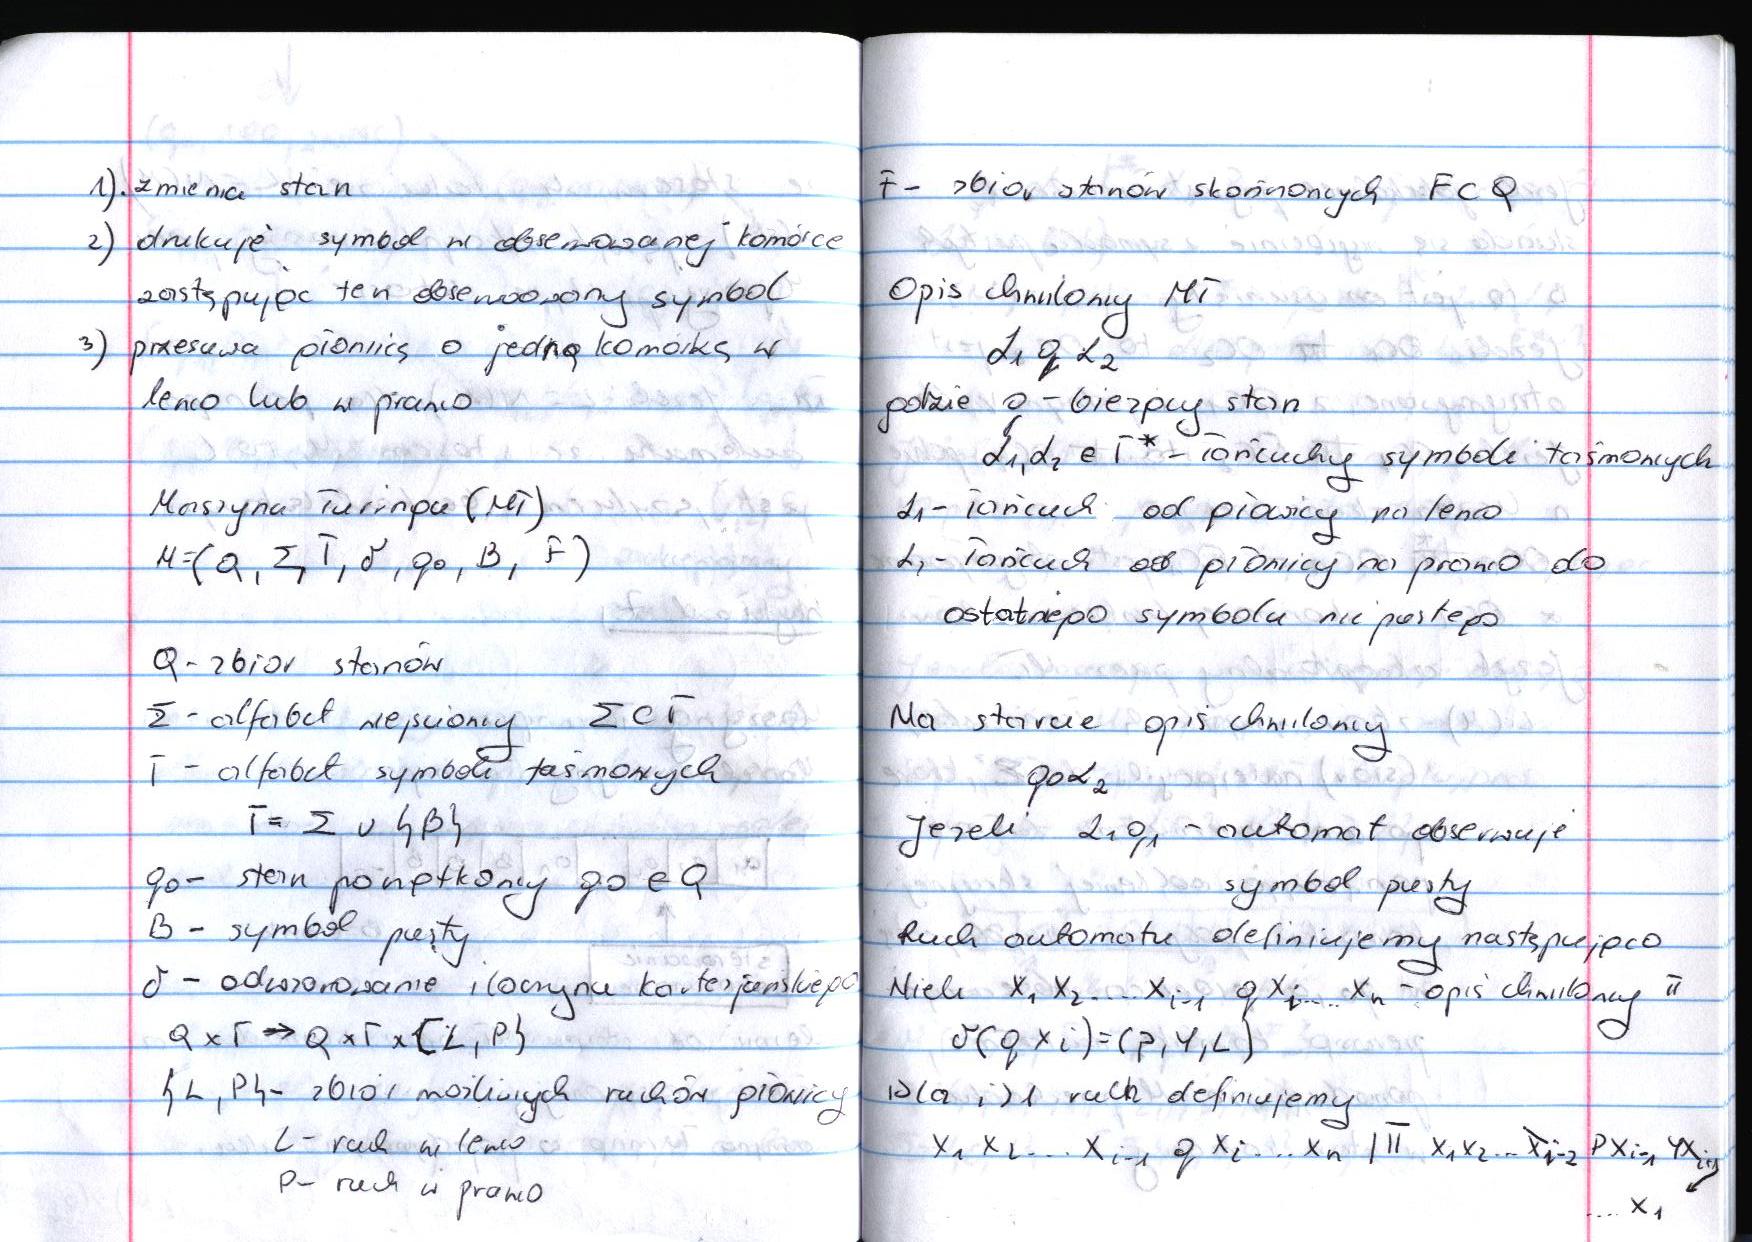 1). zmienia stan
2) drukuje symbol w obserwowanej komórce
zastępując ten obserwowany symbol
3) przesuwa głowicę o jedną komórkę w
lewo lub w prawo
Maszyna Turinga (MT)
M=(Q, Σ, Γ, δ, q0, B, F)
Q - zbiór stanów
Σ - alfabet wejściowy Σ⊂Γ
Γ - alfabet symboli taśmowych
Γ = Σ ∪ {B}
q0 - stan początkowy q0 ∈ Q
B - symbol pusty
δ - odwzorowanie iloczynu kartezjańskiego
Q × Γ → Q × Γ × {L, P}
{L, P} - zbiór możliwych ruchów głowicy
L - ruch w lewo
P - ruch w prawo
F - zbiór stanów skończonych F⊂Q
Opis chwilowy MT
α1 q α2
gdzie q - bieżący stan
α1, α2 ∈ Γ* - łańcuchy symboli taśmowych
α1 - łańcuch od głowicy na lewo
α2 - łańcuch od głowicy na prawo do
ostatniego symbolu niepustego
Na starcie opis chwilowy
q0α2
Jeżeli α1q1 - automat obserwuje
symbol pusty
Ruch automatu definiujemy następująco
Niech x1 x2 .... xi-1 q xi .... xn - opis chwilowy
δ(q xi) = (p, Y, L)
Dla i>1 ruch definiujemy
x1 x2 .... xi-1 q xi .... xn |π x1x2 ... xi-2 p xi-1 Y xi+1
.... x1